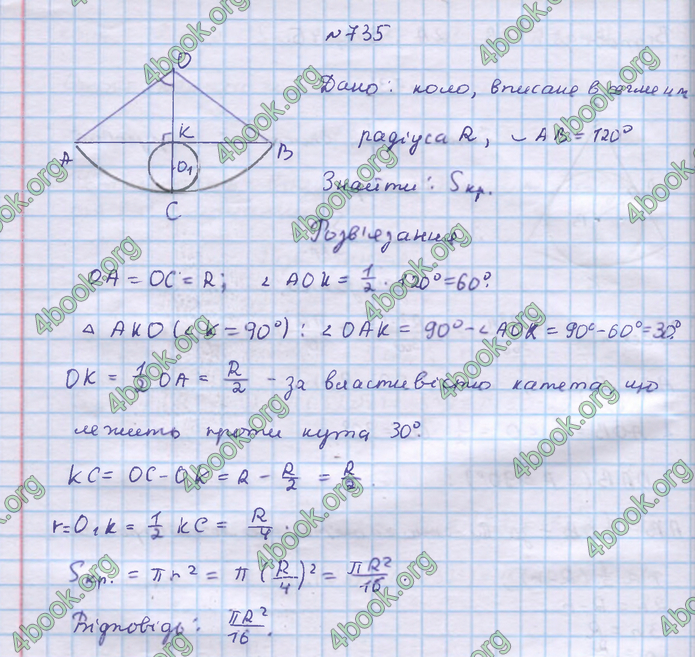 №735
O
A K B
O₁
C
Дано: коло, вписане в сегмент
радіуса R, ◡ AB = 120°
Знайти: Sкр.
Розв'язання
OA = OC = R; ∠ AOK = 1/2 · 120° = 60°.
△ AKO (∠K = 90°): ∠OAK = 90° - ∠AOK = 90° - 60° = 30°.
OK = 1/2 OA = R/2 - за властивістю катета що
лежить проти кута 30°.
KC = OC - OK = R - R/2 = R/2.
r = O₁K = 1/2 KC = R/4.
Sкр. = πr² = π (R/4)² = πR²/16
Відповідь: πR²/16.
4book.org